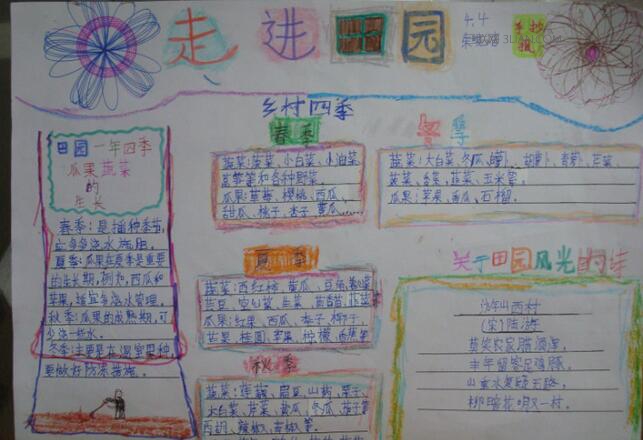 走进田园
4.4
手抄报
乡村四季
田园一年四季
瓜果蔬菜
的
生长
春季:是播种季节,
应多多浇水施肥。
夏季:瓜果在夏季是重要
的生长期,例如,西瓜和
苹果,播宜多浇水管理。
秋季:瓜果的成熟期,可
少浇一些水。
冬季:主要是在温室果种,
要做好防冻措施。
春季
蔬菜:菠菜、小白菜、小油菜
莴笋等和各种野菜。
瓜果:草莓、樱桃、西瓜、
甜瓜、桃子、杏子、黄瓜……
夏季
蔬菜:西红柿、黄瓜、豆角、
豇豆、空心菜、生菜、
瓜果:红果、西瓜、李子、椰子、
芒果、桂圆、苹果、柠檬、
秋季
蔬菜:莲藕、扁豆、山药、栗子、
大白菜、芹菜、黄瓜、冬瓜、茄子等
西胡、辣椒、
冬季
蔬菜:大白菜、冬瓜、胡萝卜、青萝卜、芹菜、
菠菜、
瓜果:苹果、西瓜、石榴。
关于田园风光的诗
游山西村
(宋)陆游
莫笑农家腊酒浑,
丰年留客足鸡豚。
山重水复疑无路,
柳暗花明又一村。